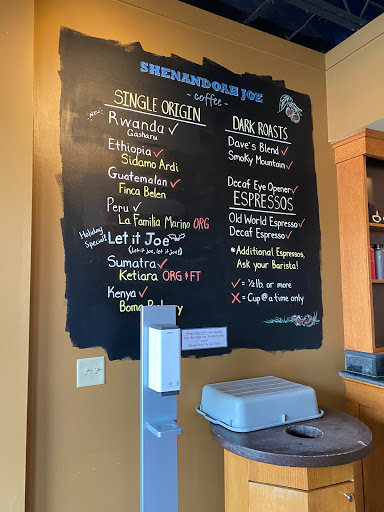 SHENANDOAH JOE
- coffee -
SINGLE ORIGIN
New Rwanda ✓
Gasharu
Ethiopia ✓
Sidamo Ardi
Guatemalan ✓
Finca Belen
Peru ✓
La Familia Marino ORG
Holiday Special! Let it Joe
(Let it Joe, let it Joe!)
Sumatra ✓
Ketiara ORG & FT
Kenya ✓
DARK ROASTS
Dave's Blend ✓
Smoky Mountain ✓
Decaf Eye Opener ✓
ESPRESSOS
Old World Espresso ✓
Decaf Espresso ✓
*Additional Espressos,
Ask your Barista!
✓ = ½ lb. or more
X = Cup @ a time only